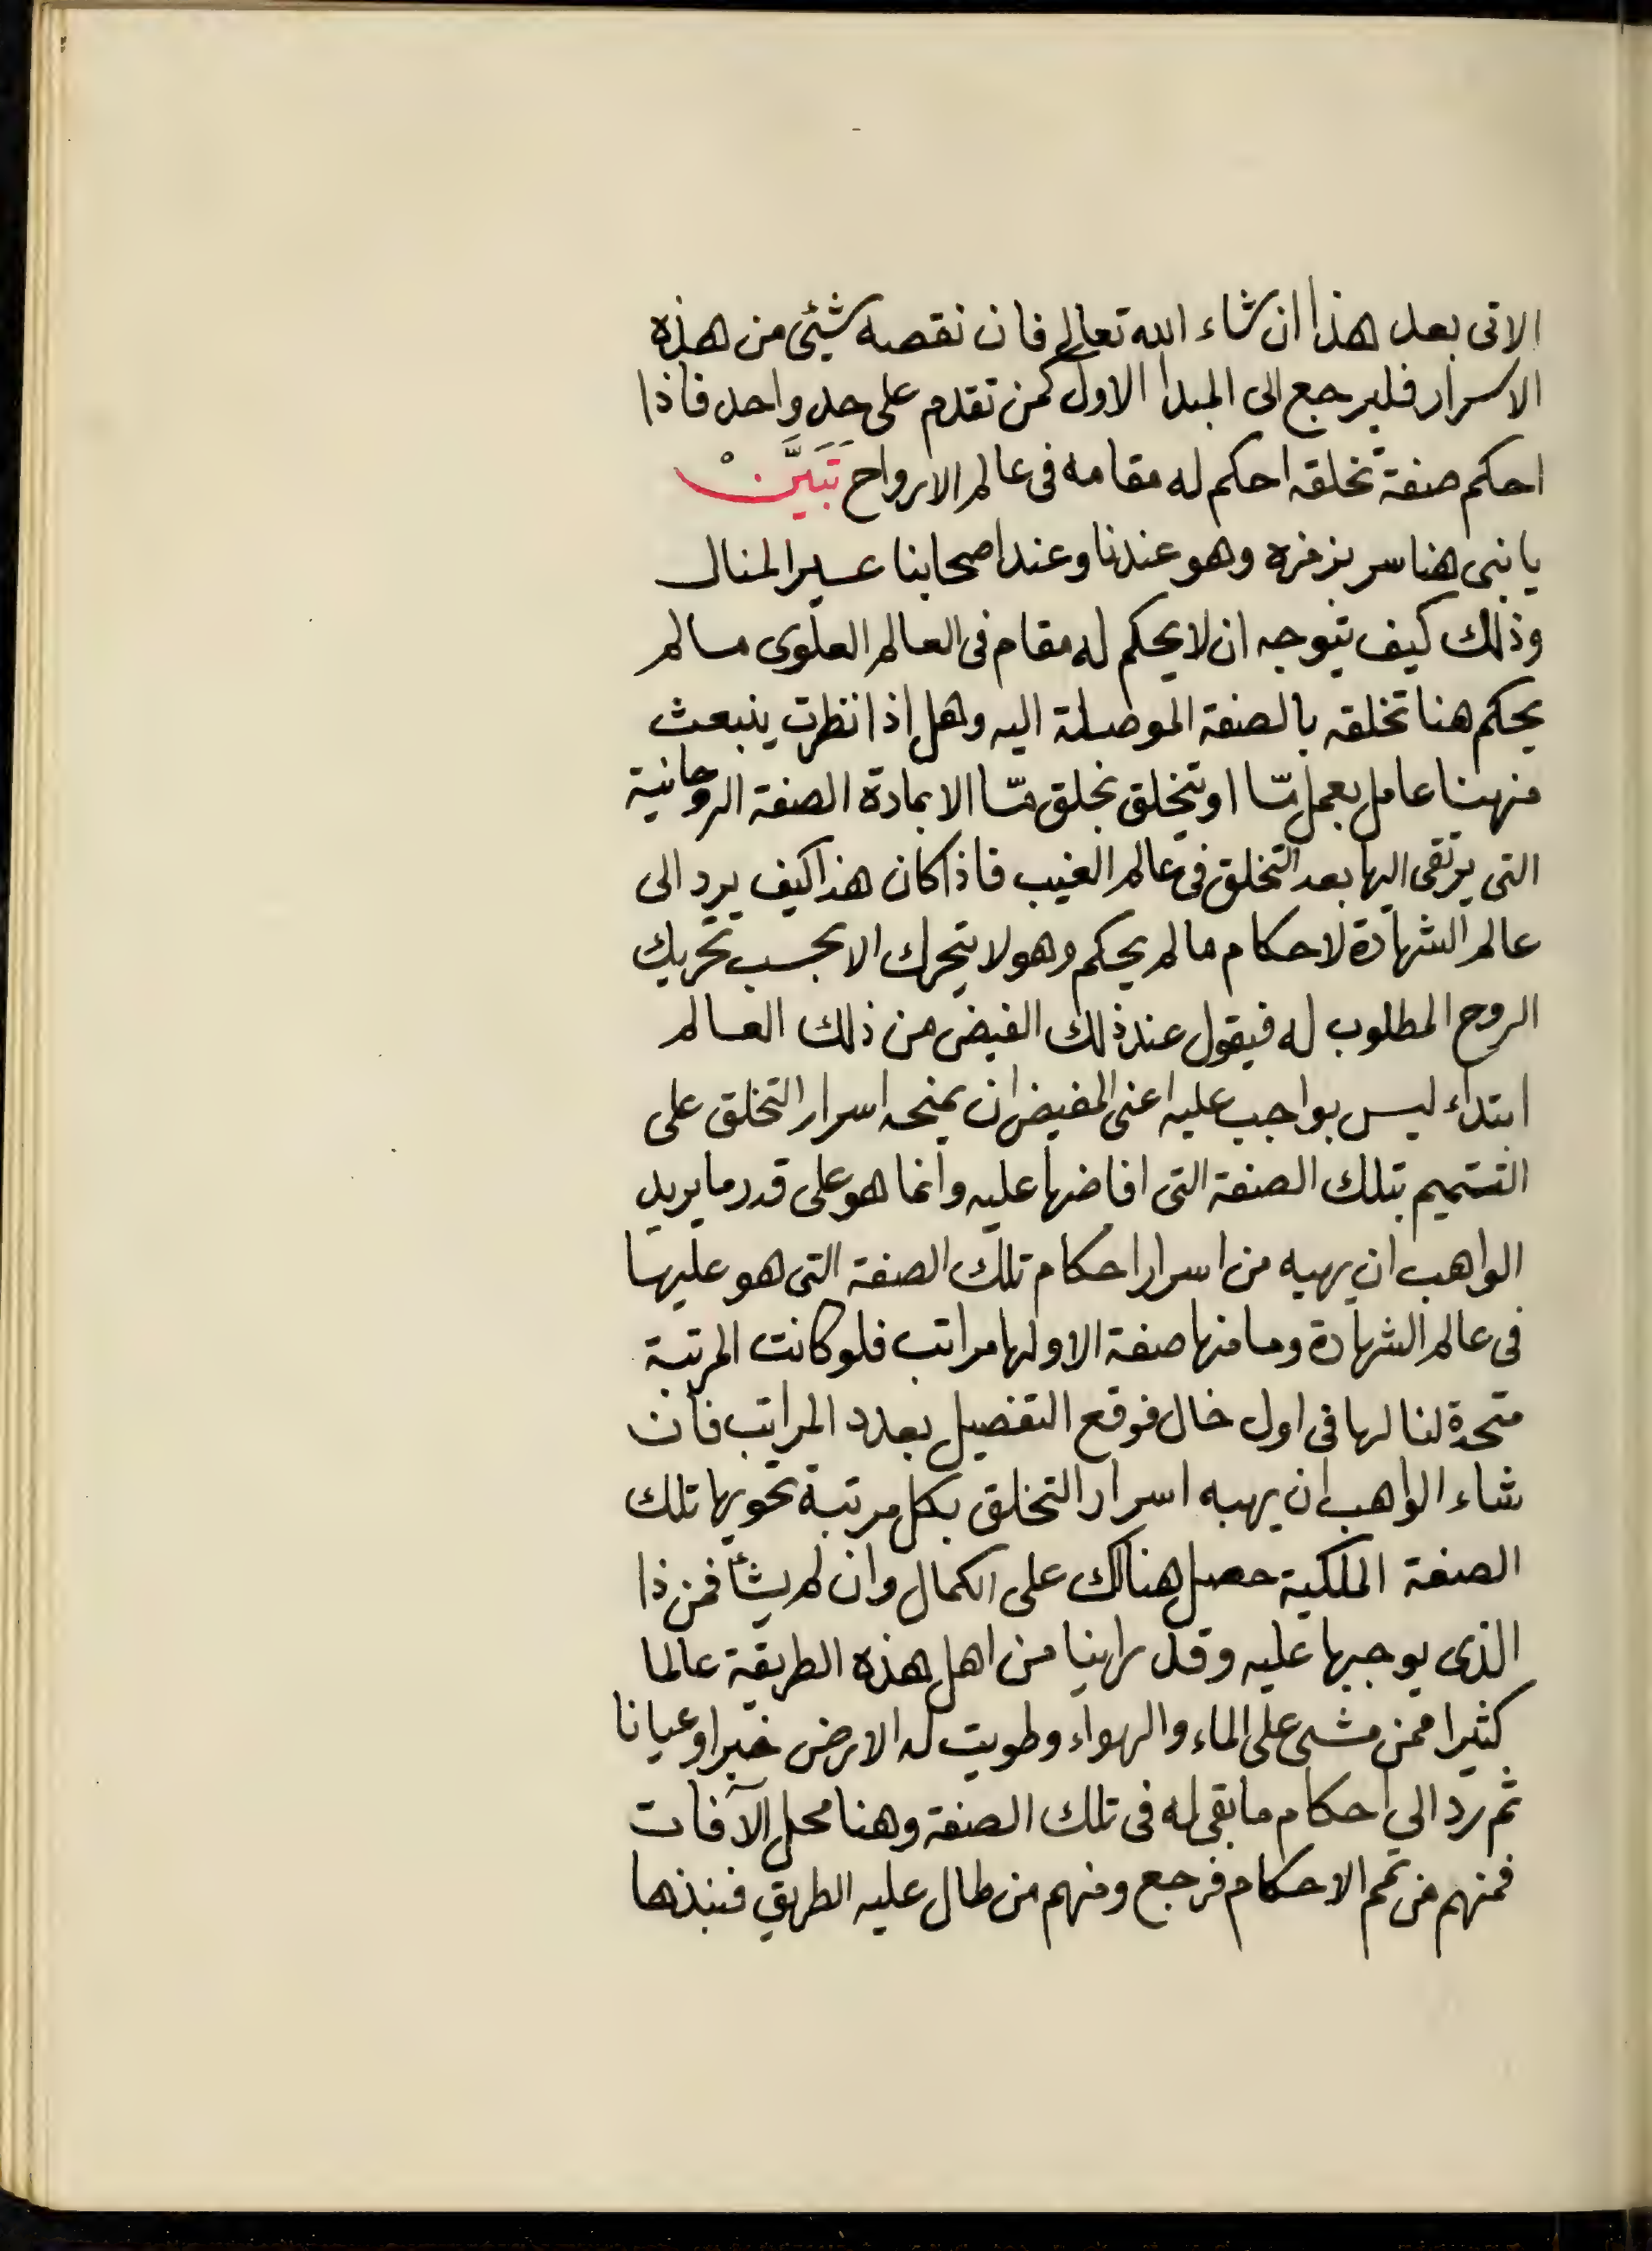 الاتى بعد هذا ان شاء الله تعالى فان نقصه شيئ من هذه
الاسرار فليرجع الى المبدا الاول كمن تقدم على حد واحد فاذا
احكم صفة تخلقه احكم له مقامه فى عالم الارواح تَبَيَّنْ
يا بنى هنا سر نرمزه وهو عندنا وعند اصحابنا عسير المنال
وذلك كيف يتوجه ان لا يحكم له مقام فى العالم العلوى مالم
يحكم هنا تخلقه بالصفة الموصلة اليه وهل اذا نظرت ينبعث
منهنا عامل بعمل مّا او يتخلق بخلق مّا الا بمادة الصفة الروحانية
التى يرتقى اليها بعد التخلق فى عالم الغيب فاذا كان هذا كيف يرد الى
عالم الشهادة لاحكام ما لم يحكم وهو لا يتحرك الا بحسب تحريك
الروح المطلوب له فيقول عند ذلك الفيض من ذلك العالم
ابتداء ليس بواجب عليه اعنى المفيض ان يمنحه اسرار التخلق على
التتميم بتلك الصفة التى افاضها عليه وانما هو على قدر ما يريد
الواهب ان يهبه من اسرار احكام تلك الصفة التى هو عليها
فى عالم الشهادة وما منها صفة الا ولها مراتب فلو كانت المرتبة
متحدة لنا لها فى اول حال فوقع التفصيل بعدد المراتب فان
شاء الواهب ان يهبه اسرار التخلق بكل مرتبة تحويها تلك
الصفة الملكية حصل هنالك على الكمال وان لم يشأ فمن ذا
الذى يوجبها عليه وقد راينا من اهل هذه الطريقة عالما
كثيرا ممن مشى على الماء والهواء وطويت له الارض خبرا وعيانا
ثم رد الى احكام ما بقى له فى تلك الصفة وهنا محل الآفات
فمنهم من تمم الاحكام فرجع ومنهم من طال عليه الطريق فنبذها